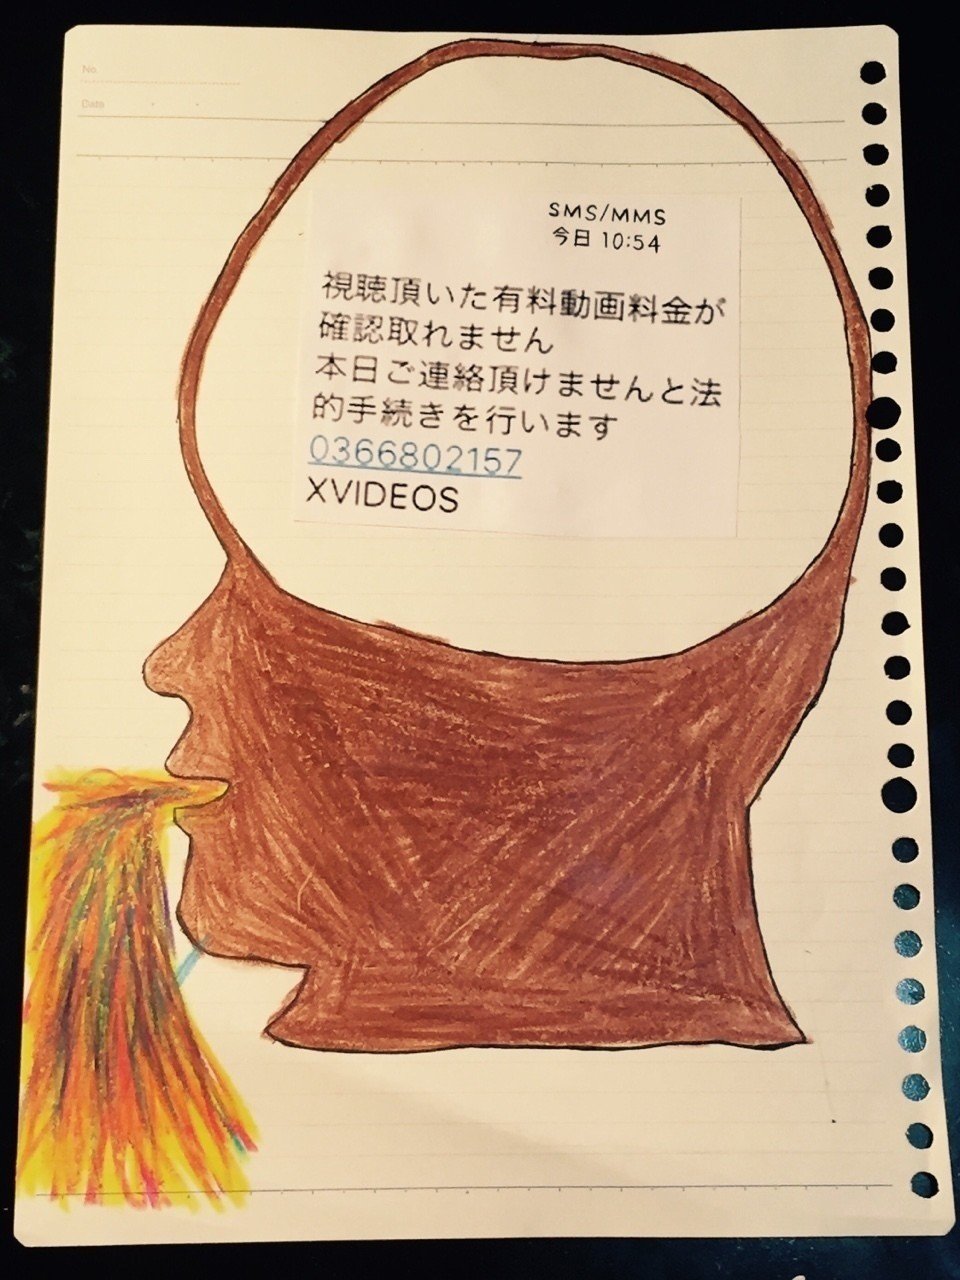 No.
Date
SMS/MMS
今日 10:54
視聴頂いた有料動画料金が
確認取れません
本日ご連絡頂けませんと法
的手続きを行います
0366802157
XVIDEOS